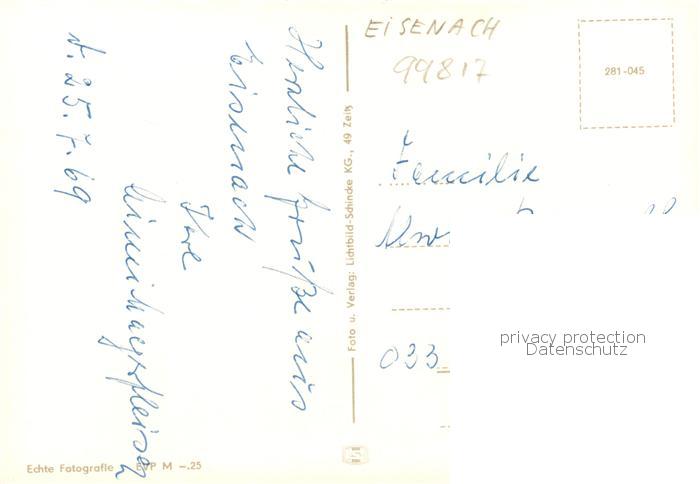 EISENACH
99817
281-045
Herzliche Grüße aus
Eisenach
Ihre
d. 25.7.69
Familie
033
Foto u. Verlag: Lichtbild-Schincke KG., 49 Zeitz
Echte Fotografie EVP M -.25
privacy protection
Datenschutz